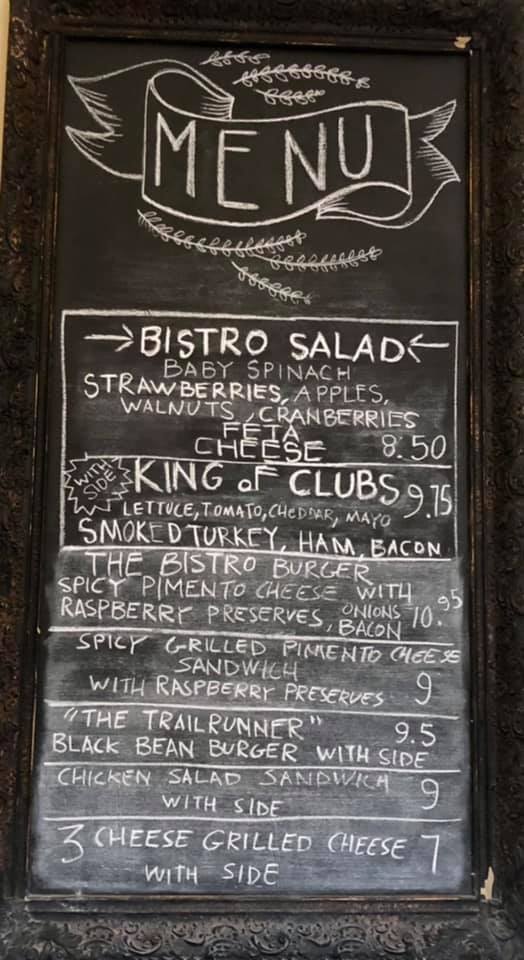 MENU
→BISTRO SALAD←
BABY SPINACH
STRAWBERRIES, APPLES,
WALNUTS, CRANBERRIES
FETA
CHEESE 8.50
WITH SIDE KING of CLUBS 9.75
LETTUCE, TOMATO, CHEDDAR, MAYO
SMOKED TURKEY, HAM, BACON
THE BISTRO BURGER
SPICY PIMENTO CHEESE WITH
RASPBERRY PRESERVES, ONIONS BACON 10.95
SPICY GRILLED PIMENTO CHEESE
SANDWICH
WITH RASPBERRY PRESERVES 9
"THE TRAILRUNNER" 9.5
BLACK BEAN BURGER WITH SIDE
CHICKEN SALAD SANDWICH 9
WITH SIDE
3 CHEESE GRILLED CHEESE 7
WITH SIDE